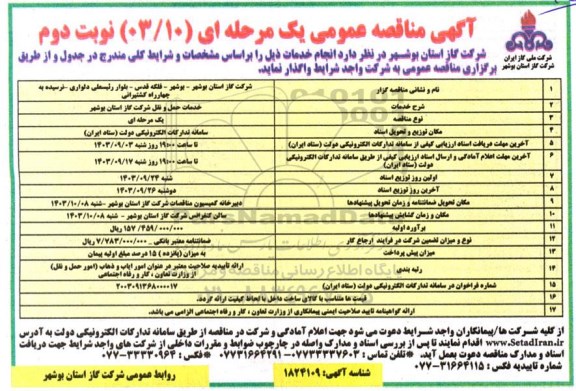 آگهی مناقصه عمومی یک مرحله ای (۰۳/۱۰) نوبت دوم
شرکت ملی گاز ایران
شرکت گاز استان بوشهر
شرکت گاز استان بوشهر در نظر دارد انجام خدمات ذیل را براساس مشخصات و شرایط کلی مندرج در جدول و از طریق
برگزاری مناقصه عمومی به شرکت واجد شرایط واگذار نماید.
۱ نام و نشانی مناقصه گزار شرکت گاز استان بوشهر - بوشهر - فلکه قدس - بلوار رئیسعلی دلواری - نرسیده به
چهارراه کشتیرانی
۲ شرح خدمات خدمات حمل و نقل شرکت گاز استان بوشهر
۳ نوع مناقصه یک مرحله ای
۴ مکان توزیع و تحویل اسناد سامانه تدارکات الکترونیکی دولت (ستاد ایران)
۵ آخرین مهلت دریافت اسناد ارزیابی کیفی از سامانه تدارکات الکترونیکی دولت (ستاد ایران) تا ساعت ۱۹:۰۰ روز شنبه ۱۴۰۳/۰۹/۰۳
۶ آخرین مهلت اعلام آمادگی و ارسال اسناد ارزیابی کیفی از طریق سامانه تدارکات الکترونیکی
دولت (ستاد ایران) تا ساعت ۱۹:۰۰ روز شنبه ۱۴۰۳/۰۹/۱۷
۷ اولین روز توزیع اسناد شنبه ۱۴۰۳/۰۹/۲۴
۸ آخرین روز توزیع اسناد دوشنبه ۱۴۰۳/۰۹/۲۶
۹ مکان تحویل ضمانتنامه و زمان تحویل پیشنهادها دبیرخانه کمیسیون مناقصات شرکت گاز استان بوشهر - شنبه ۱۴۰۳/۱۰/۰۸
۱۰ مکان و زمان گشایش پیشنهادها سالن کنفرانس شرکت گاز استان بوشهر - شنبه ۱۴۰۳/۱۰/۰۸
۱۱ برآورد اولیه ۱۵۷/۴۵۹/۰۰۰/۰۰۰ ریال
۱۲ نوع و میزان تضمین شرکت در فرایند ارجاع کار ضمانتنامه معتبر بانکی _ ۷/۷۸۳/۰۰۰/۰۰۰ ریال
۱۳ میزان پیش پرداخت به میزان (پانزده) ۱۵ درصد مبلغ اولیه پیمان
۱۴ رتبه بندی ارائه تأییدیه صلاحیت معتبر در عنوان امور ایاب و ذهاب (امور حمل و نقل)
از وزارت تعاون، کار و رفاه اجتماعی
۱۵ شماره فراخوان در سامانه تدارکات الکترونیکی دولت (ستاد ایران) ۲۰۰۳۰۹۱۳۶۸۰۰۰۰۱۷
۱۶ قیمت ها متناسب با کالای ساخت داخل با لحاظ کیفیت ارائه گردد.
۱۷ ارائه گواهینامه تایید صلاحیت ایمنی پیمانکاری از وزارت تعاون، کار و رفاه اجتماعی الزامی می باشد.
از کلیه شرکت ها/پیمانکاران واجد شرایط دعوت می شود جهت اعلام آمادگی و شرکت در مناقصه از طریق سامانه تدارکات الکترونیکی دولت به آدرس
www.SetadIran.ir اقدام نمایند تا پس از بررسی اسناد و مدارک واصله در چارچوب ضوابط و مقررات داخلی از شرکت های واجد شرایط جهت دریافت
اسناد و مدارک مناقصه دعوت بعمل آید. *تلفن تماس: ۰۷۷۳۳۳۳۷۶۰۳-۰۷۷۳۱۶۶۴۲۹۱ *فکس: ۰۷۷-۳۳۳۳۰۹۶۴
شماره تاییدیه فکس: ۰۷۷-۳۱۶۶۴۱۱۵
شناسه آگهی: ۱۸۲۴۱۰۹
روابط عمومی شرکت گاز استان بوشهر